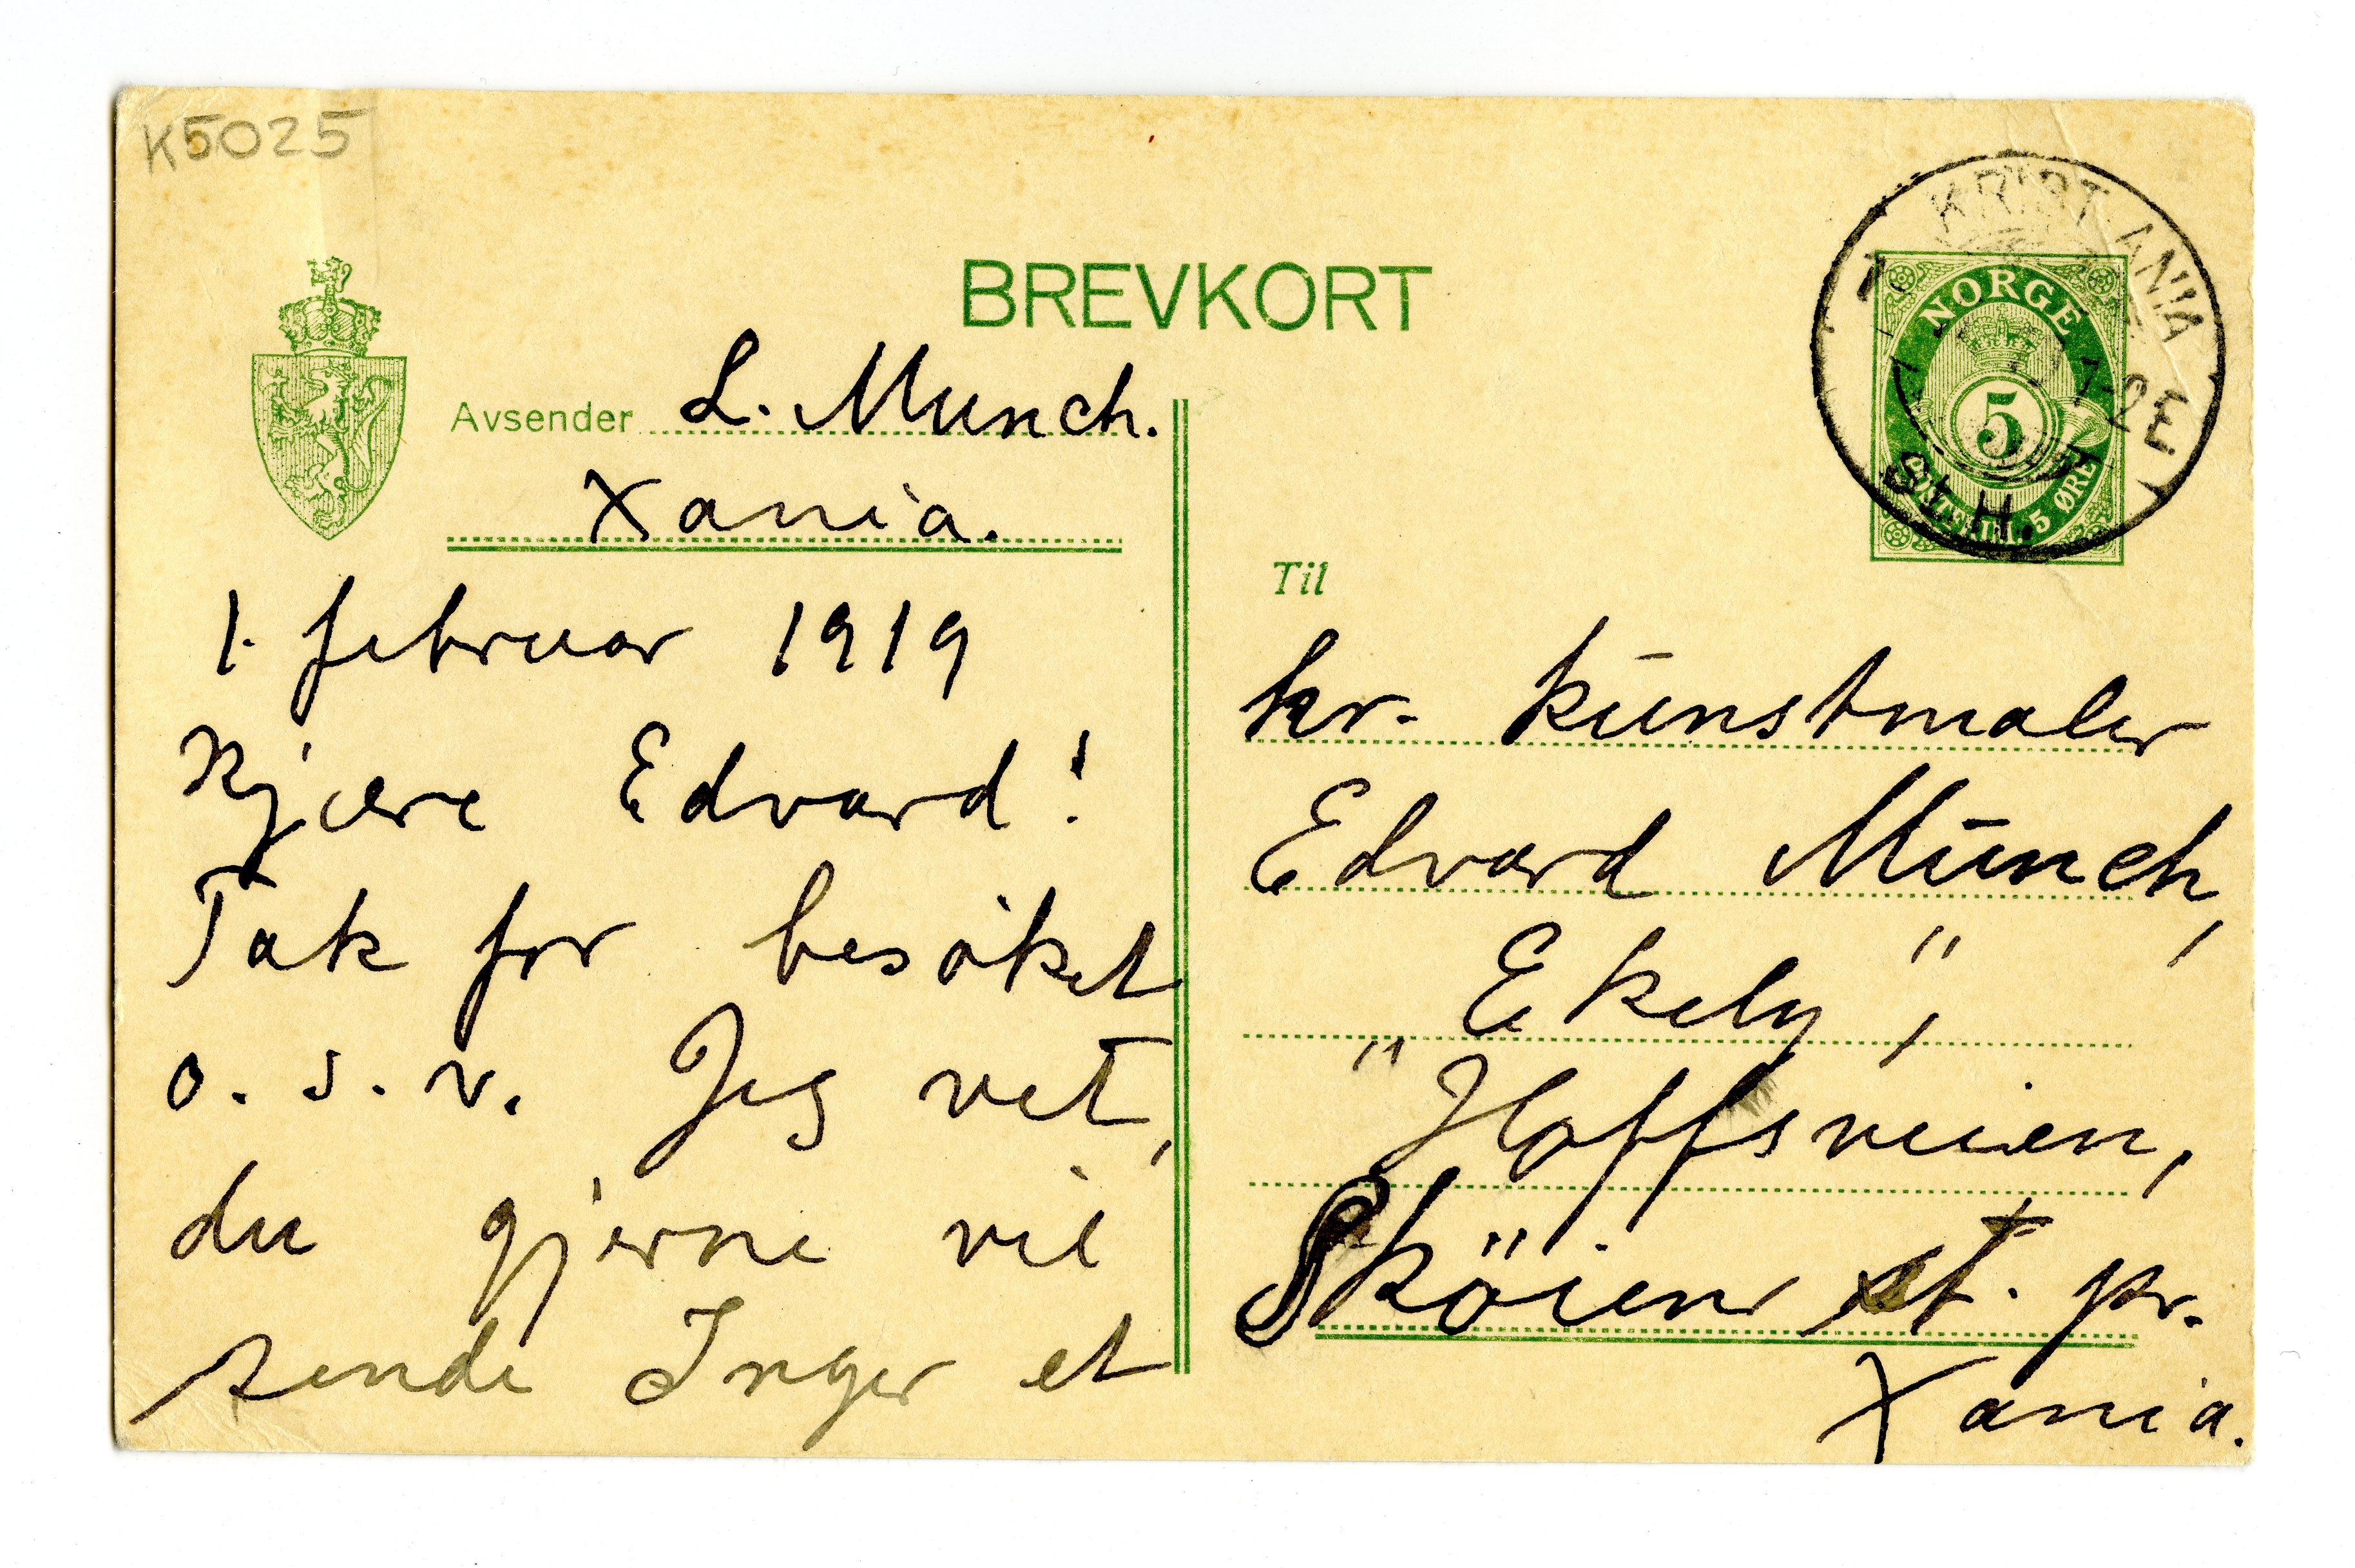 K5025
BREVKORT
Avsender L. Munch.
Xania.
1. februar 1919
Kjære Edvard!
Tak for besöket
o. s. v. Jeg vet,
du gjerne vil
sende Inger et
KRISTIANIA
St. H.
NORGE
5
POSTFRIM. 5 ØRE
Til
hr. kunstmaler
Edvard Munch,
"Ekely",
Hoffsveien,
Sköien st. pr.
Xania.